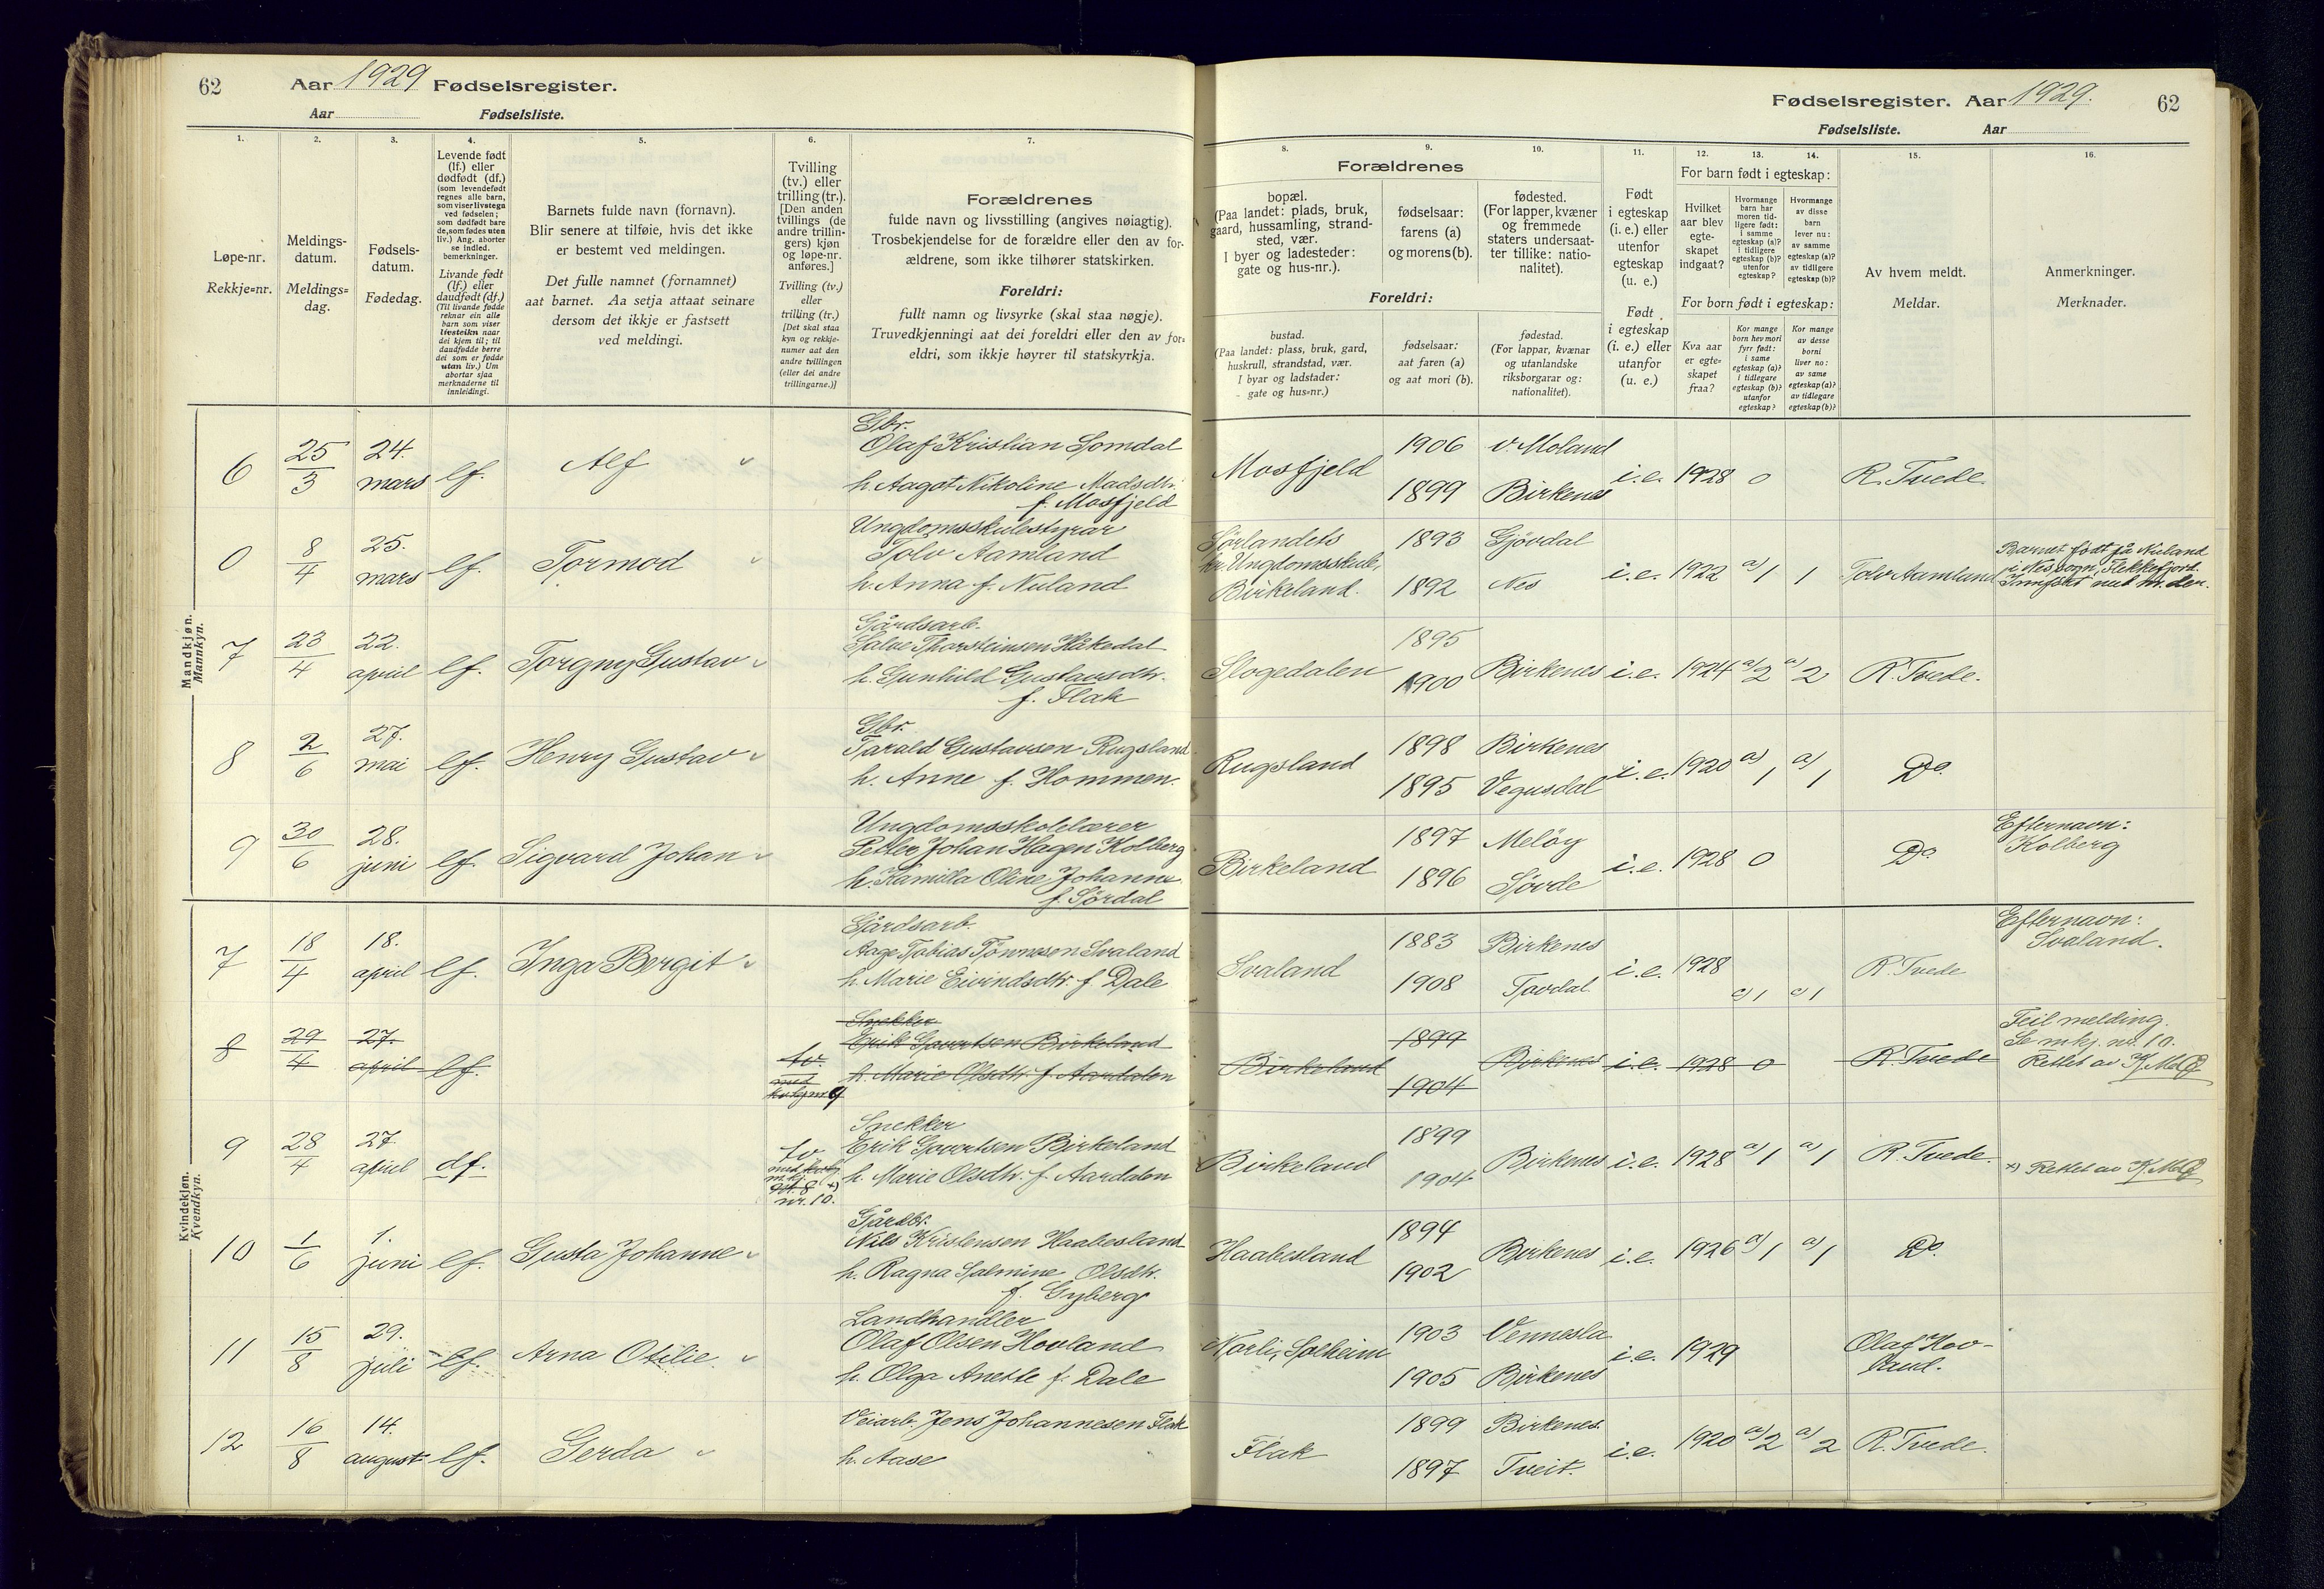 62
Aar 1929 Fødselsregister.
Aar Fødselsliste.
1.
2.
3.
4.
5.
6.
7.
Løpe-nr.
Rekkje=nr.
Meldings-
datum.
Meldings=
dag.
Fødsels-
datum.
Fødedag.
Levende født
(lf.) eller
dødfødt (df.)
(som levendefødt
regnes alle barn,
som viser livstegn
ved fødselen;
som dødfødt bare
de, som fødes uten
liv.) Ang. aborter
se indled.
bemerkninger.
Livande født
(lf.) eller
daudfødt (df.)
(Til livande fødde
reknar ein alle
barn som viser
livsteikn naar
dei kjem til; til
daudfødde berre
dei som er fødde
utan liv.) Um
abortar sjaa
merknaderne til
innleidingi.
Barnets fulde navn (fornavn).
Blir senere at tilføie, hvis det ikke
er bestemt ved meldingen.
Det fulle namnet (fornamnet)
aat barnet. Aa setja attaat seinare
dersom det ikkje er fastsett
ved meldingi.
Tvilling
(tv.) eller
trilling (tr.).
[Den anden
tvillings (de
andre trillin-
gers) kjøn
og løpe-nr.
anføres.]
Tvilling (tv.)
eller
trilling (tr.)
[Det skal staa
kyn og rekkje-
numer aat den
andre tvillingen
(eller dei andre
trillingarne.)]
Forældrenes
fulde navn og livsstilling (angives nøiagtig).
Trosbekjendelse for de forældre eller den av for-
ældrene, som ikke tilhører statskirken.
Foreldri:
fullt namn og livsyrke (skal staa nøgje).
Truvedkjenningi aat dei foreldri eller den av for=
eldri, som ikkje høyrer til statskyrkja.
Fødselsregister. Aar 1929.
62
Fødselsliste. Aar
8.
9.
10.
11.
12.
13.
14.
15.
16.
Forældrenes
bopæl.
(Paa landet: plads, bruk,
gaard, hussamling, strand-
sted, vær.
I byer og ladesteder:
gate og hus-nr.).
fødselsaar:
farens (a)
og morens (b).
fødested.
(For lapper, kvæner
og fremmede
staters undersaat-
ter tillike: natio-
nalitet).
Foreldri:
bustad.
(Paa landet: plass, bruk, gard,
huskrull, strandstad, vær.
I byar og ladstader:
gate og hus=nr.)
fødselsaar:
aat faren (a)
og aat mori (b).
fødestad.
(For lappar, kvænar
og utanlandske
riksborgarar og:
nationalitet).
Født
i egteskap
(i. e.) eller
utenfor
egteskap
(u. e.)
Født
i egteskap
(i. e.) eller
utanfor
egteskap
(u. e.)
For barn født i egteskap:
Hvilket
aar blev
egte-
skapet
indgaat?
Hvormange
barn har
moren tid-
ligere født:
i samme
egteskap (a)?
i tidligere
egteskap (b)?
utenfor
egteskap?
Hvormange
av disse
barn
lever nu:
av samme
egteskap (a)?
av tidligere
egteskap (b)?
For born født i egteskap:
Kva aar
er egte=
skapet
fraa?
Kor mange
born hev mori
fyrr født:
i same
egteskap (a)?
i tidlegare
egteskap (b)?
utanfor
egteskap?
Kor mange
av desse
borni
liver no:
av same
egteskap (a)?
av tidlegare
egteskap (b)?
Av hvem meldt.
Meldar.
Anmerkninger.
Merknader.
Mandkjøn.
Mannkyn.
6 25/3 24. mars lf. Alf
Gbr.
Olaf Kristian Somdal
h. Aagot Nikoline Madsdtr.
f. Mosfjeld
Mosfjeld 1906 1899 v. Moland Birkenes i.e. 1928 0 R. Tvede.
0 8/4 25. mars lf. Tormod
Ungdomsskulestyrar
Tolv Aamland
h. Anna f. Nuland
Sørlandets
kr. Ungdomsskule,
Birkeland. 1893 1892 Gjövdal Nes i.e. 1922 a) 1 1 Tolv Aamland
Barnet født på Nuland
i Nes sogn, Flekkefjord.
7 23/4 22. april lf. Torgny Gustav
Gårdsarb.
Salve Thorsteinsen Håkedal
h. Gunhild Gustavsdtr.
f. Flak
Slogedalen 1895 1900 Birkenes i.e. 1924 a) 2 a) 2 R. Tvede.
8 2/6 27. mai lf. Henry Gustav
Gbr.
Tarald Gustavsen Rugsland
h. Anne f. Hommen.
Rugsland 1898 1895 Birkenes Vegusdal i.e. 1920 a) 1 a) 1 Do.
9 30/6 28. juni lf. Sigvard Johan
Ungdomsskolelærer
Petter Johan Hagen Kolberg
h. Kamilla Oline Johanne
f. Sørdal
Birkeland 1897 1896 Meløy Sjövde i.e. 1928 0 Do.
Efternavn:
Kolberg
Kvindekjøn.
Kvendkyn.
7 18/4 18. april lf. Inga Bergit
Gårdsarb.
Aage Tobias Tönnesen Svaland
h. Marie Eivindsdtr. f. Dale
Svaland 1883 1908 Birkenes Tovdal. i.e. 1928 a) 1 a) 1 R. Tvede
Efternavn:
Svaland.
8 29/4 27. april lf. tv. med
Snekker
Erik Govertsen Birkeland
h. Marie Olsdtr. f. Aardalen
Birkeland 1899 1904 Birkenes i.e. 1928 0 R. Tvede
Feil melding.
Se mkj. nr. 10.
Rettet av
9 28/4 27. april df. tv
m.kj.
nr. 10.
Snekker
Erik Govertsen Birkeland
h. Marie Olsdtr. f. Aardalen
Birkeland 1899 1904 Birkenes i.e. 1928 a) 1 a) 1 R. Tvede.
x) Rettet av
10 1/6 1. juni lf. Gusta Johanne
Gårdbr.
Nils Kristensen Haabesland
h. Ragna Salmine Olsdtr.
f. Gyberg
Haabesland 1894 1902 Birkenes i.e. 1926 a) 1 a) 1 Do.
11 15/8 29. juli lf. Arna Otilie.
Landhandler
Olaf Olsen Hovland
h. Olga Anette f. Dale
Norli, Solheim 1903 1905 Vennesla Birkenes i.e. 1929
Olaf Hov-
land.
12 16/8 14. august lf. Gerda
Veiarb. Jens Johannesen Flak
h. Aase
Flak 1899 1897 Birkenes. Tveit. i.e. 1920 a) 2 a) 2 R. Tvede.